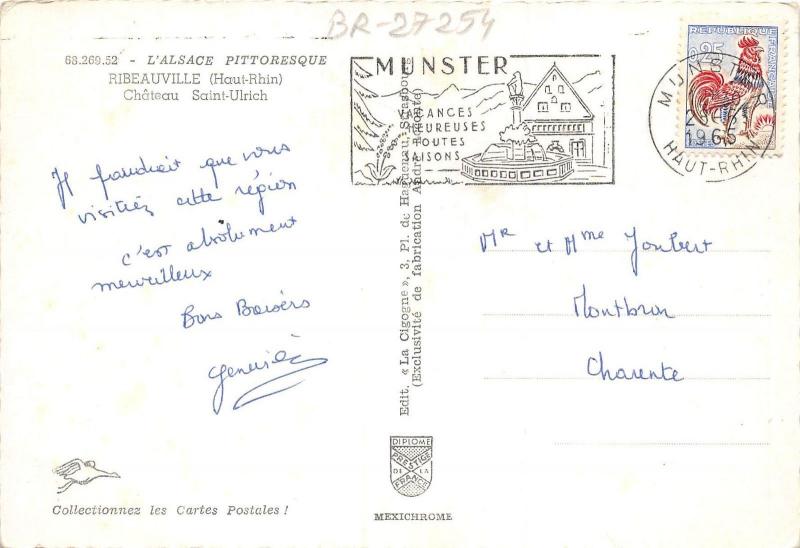 BR-27254
68.269.52 - L'ALSACE PITTORESQUE
RIBEAUVILLE (Haut-Rhin)
Château Saint-Ulrich
Il faudrait que vous
visitiez cette région
c'est absolument
merveilleux
Bons Baisers
Geneviève
Collectionnez les Cartes Postales !
Edit. « La Cigogne », 3, Pl. de Haguenau, Strasbourg
(Exclusivité de fabrication André
DIPLOME
PRESTIGE
DE LA
FRANCE
MEXICHROME
MUNSTER
VACANCES
HEUREUSES
TOUTES
SAISONS
REPUBLIQUE FRANÇAISE
0,25
MUNSTER
1965
HAUT-RHIN
Mr et Mme Joubert
Montbron
Charente